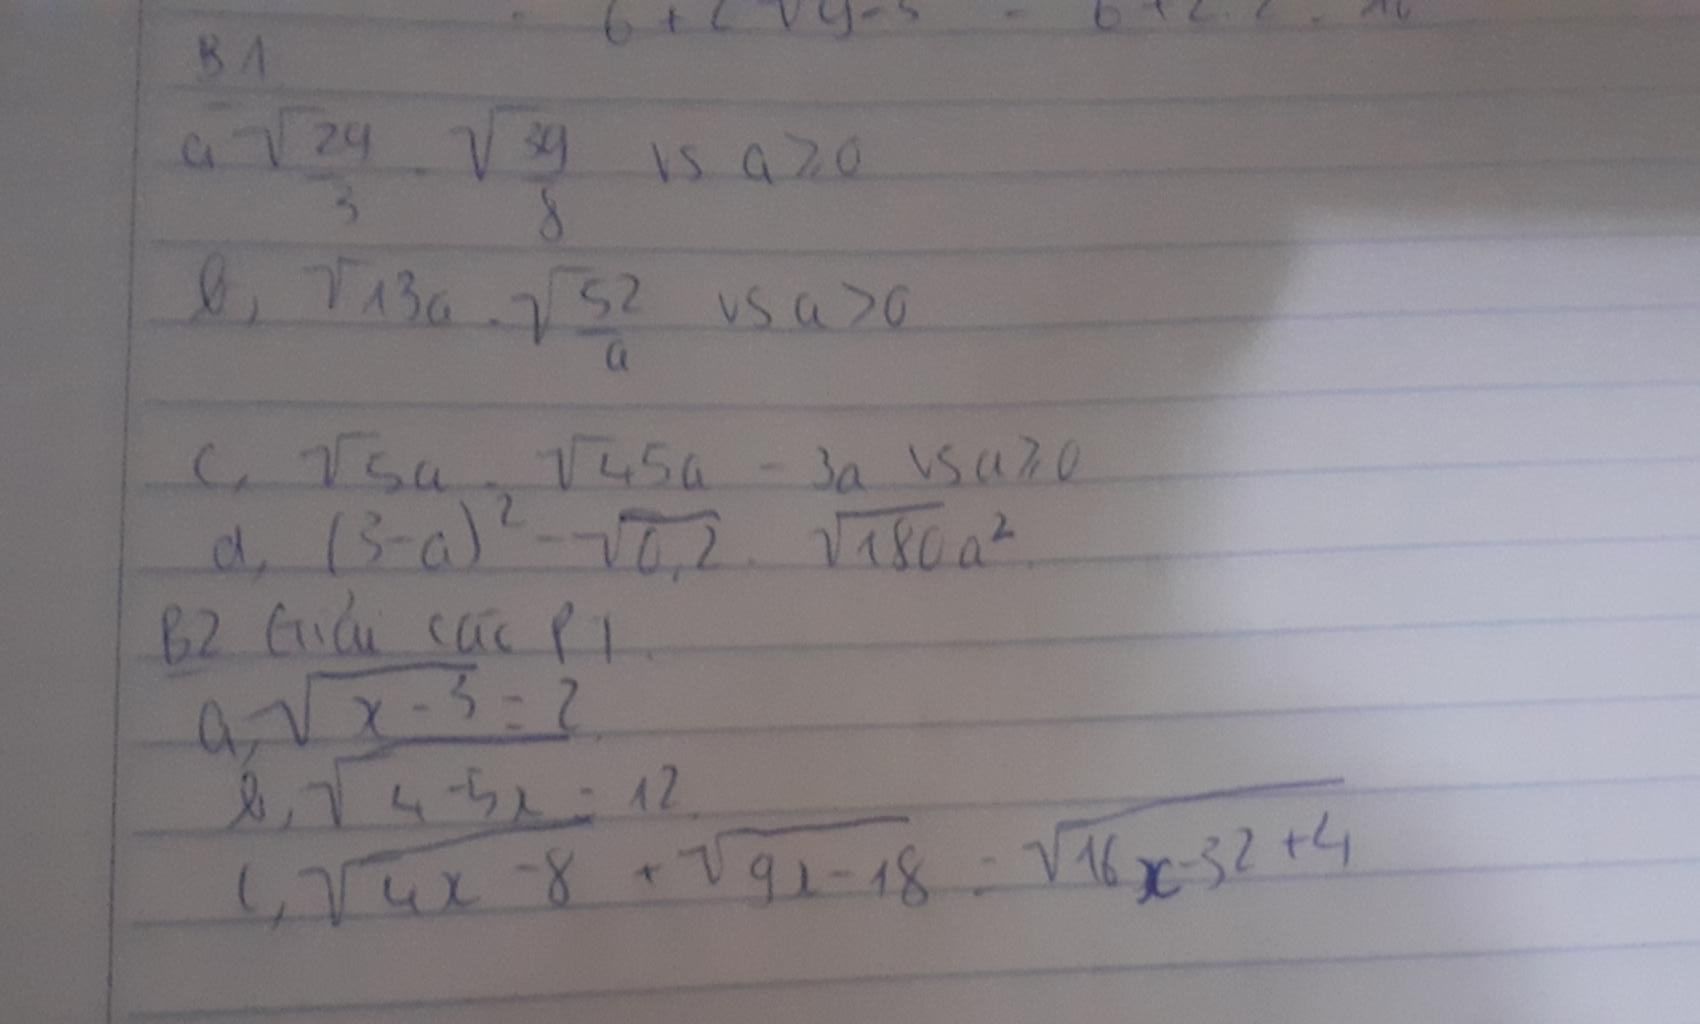 B1
a √24/3 . √3a/8 vs a ≥ 0
b, √13a . √52/a vs a > 0
c, √5a . √45a - 3a vs a ≥ 0
d, (3-a)² - √0,2 . √180a²
B2 Giải các PT
a, √x-3 = 2
b, √4-5x = 12
c, √4x-8 + √9x-18 = √16x-32+4